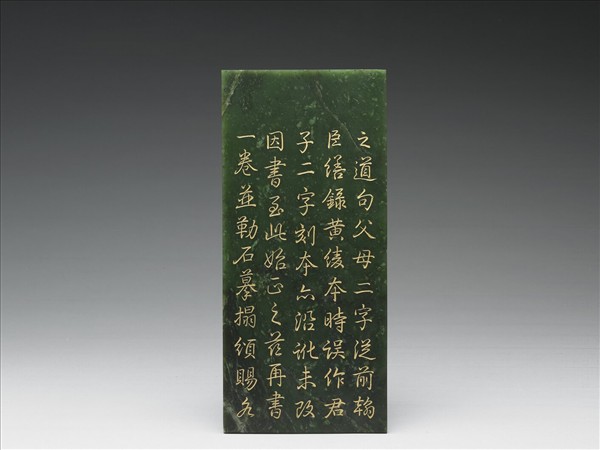 之道句父母二字從前翰
臣繕錄黃綾本時誤作君
子二字刻本亦沿訛未改
因書至此始正之茲再書
一卷並勒石摹搨頒賜各